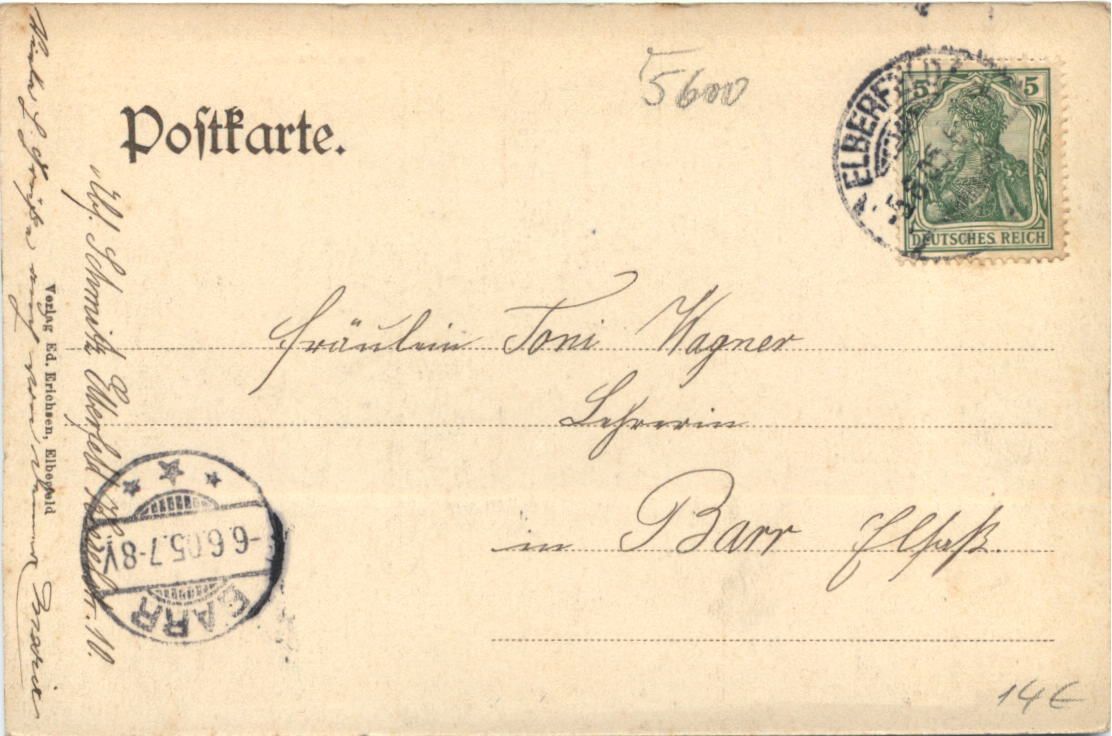 5600
Postkarte.
5 5
DEUTSCHES REICH
ELBERFELD
Fräulein Toni Wagner
Lehrerin
in Barr Elsaß.
BARR
6.6.05.7-8V.
Schmitz Elberfeld 10.
Verlag Ed. Erichsen, Elberfeld
Viele Grüße
Marie
14€